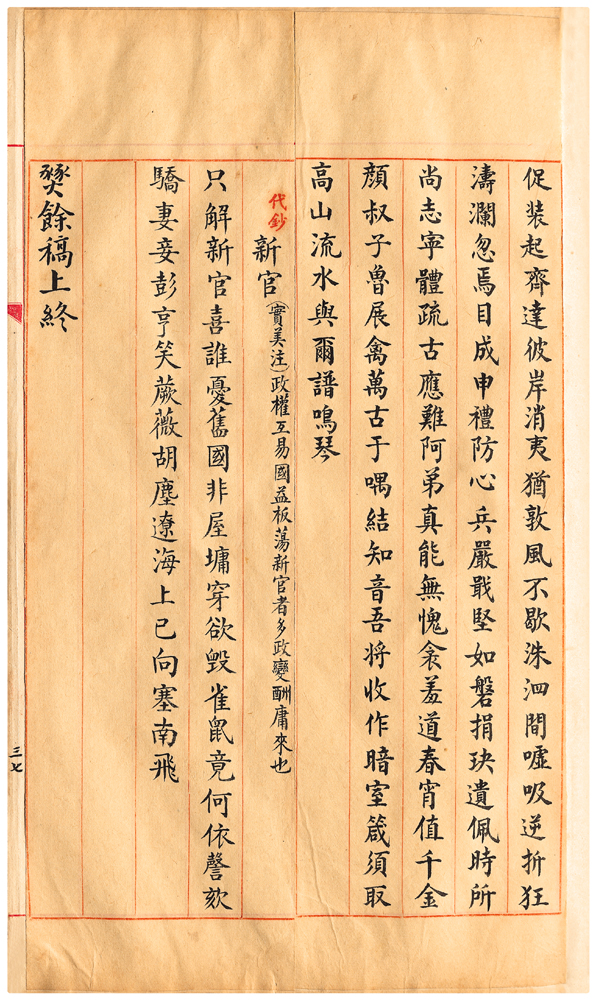 促装起齊達彼岸消夷猶敦風不歇洙泗間噓吸逆折狂
濤瀾忽焉目成申禮防心兵嚴戢堅如磐捐玦遺佩時所
尚志寧體疏古應難阿弟真能無愧衾羞道春宵值千金
顏叔子魯展禽萬古于喁結知音吾将收作暗室箴須取
高山流水與爾譜鳴琴
代鈔
新官(實美注)政權互易國益板蕩新官者多政變酬庸來也
只解新官喜誰憂舊國非屋墉穿欲毀雀鼠竟何依謦欬
驕妻妾彭亨笑蕨薇胡塵遼海上已向塞南飛
爕餘稿上終
三七